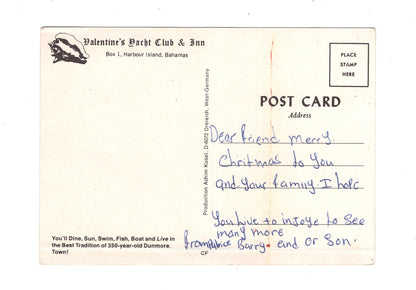 Valentine's Yacht Club & Inn
Box 1, Harbour Island, Bahamas
PLACE
STAMP
HERE
POST CARD
Address
Dear Friend merry
Christmas to You
and Your family I hope
You live to injoye to See
many more
From Barry and or Son.
Production Achim Kosel, D-6072 Dreieich, West-Germany
You'll Dine, Sun, Swim, Fish, Boat and Live in
the Best Tradition of 350-year-old Dunmore
Town!
CP